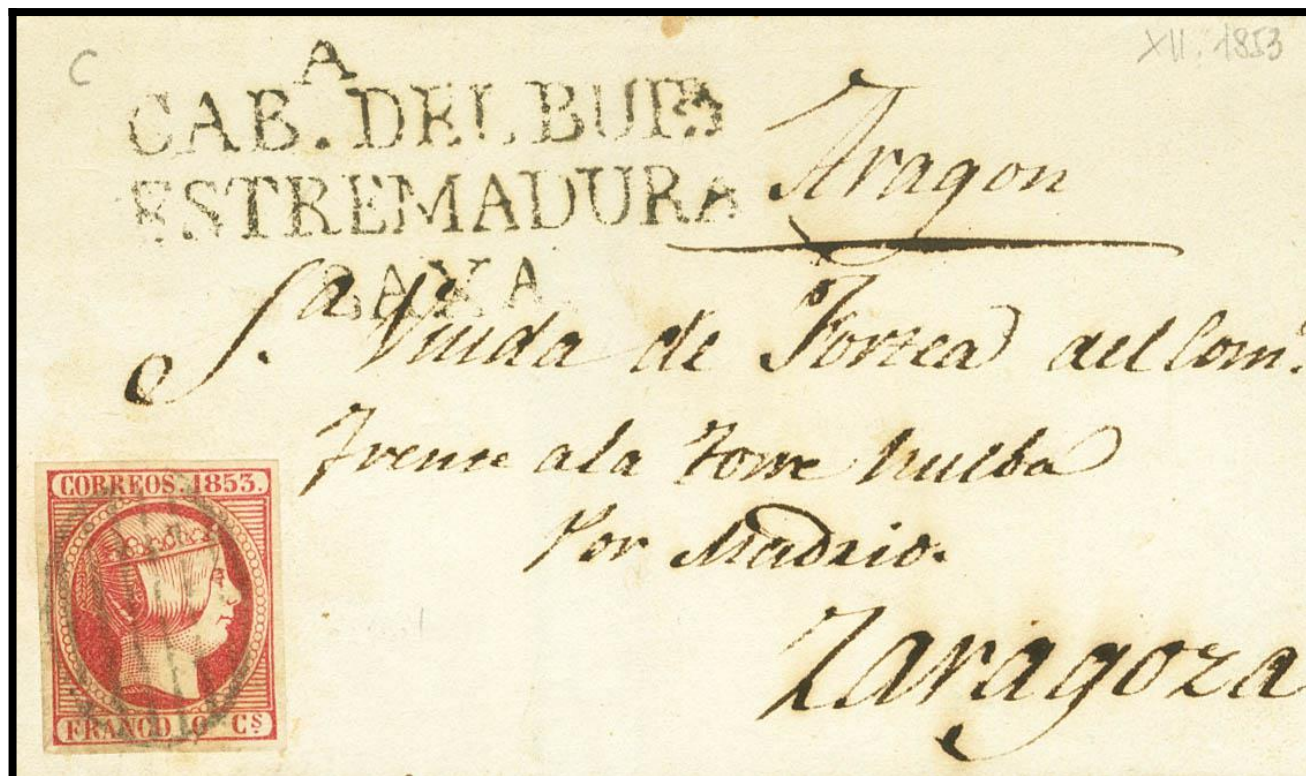 C
XII. 1853
A
CAB. DEL BUEY
ESTREMADURA
BAXA.
Aragon
S.ª Viuda de Fortea del Com.º
Frente a la Torre Nueba
Por Madrid.
Zaragoza
CORREOS. 1853.
FRANCO 6 Cs